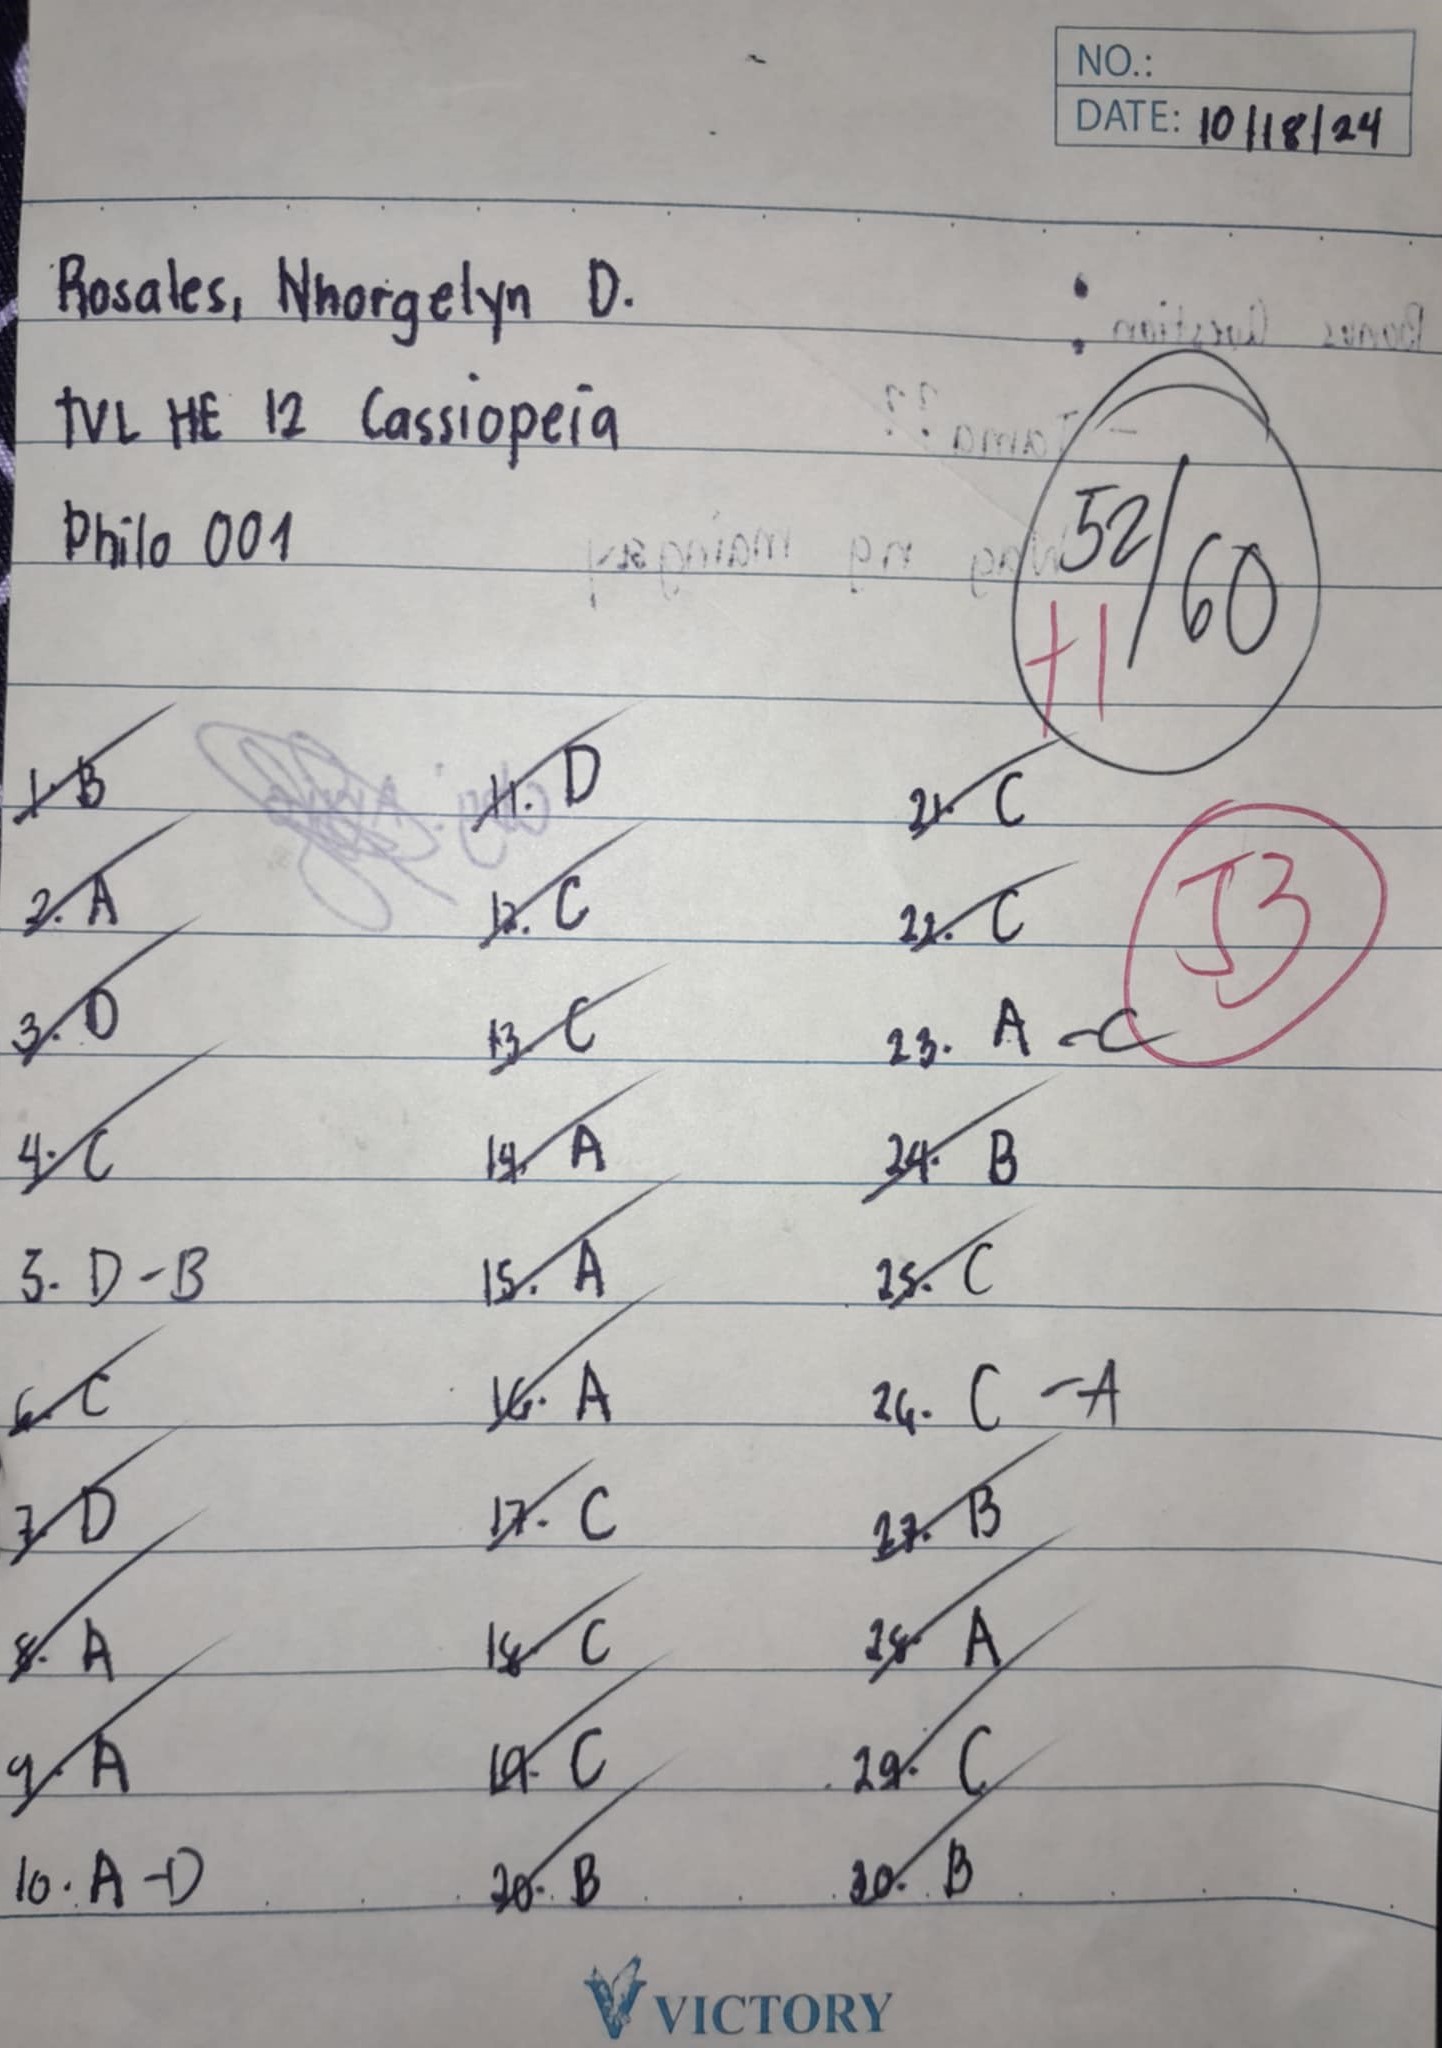 NO.:
DATE: 10/18/24
Rosales, Nhorgelyn D.
TVL HE 12 Cassiopeia
Philo 001
Bonus Question :
- Tama??
Wag ng maingay
52/60
+1
53
1. B
2. A
3. D
4. C
5. D - B
6. C
7. D
8. A
9. A
10. A - D
11. D
12. C
13. C
14. A
15. A
16. A
17. C
18. C
19. C
20. B
21. C
22. C
23. A - C
24. B
25. C
26. C - A
27. B
28. A
29. C
30. B
VICTORY